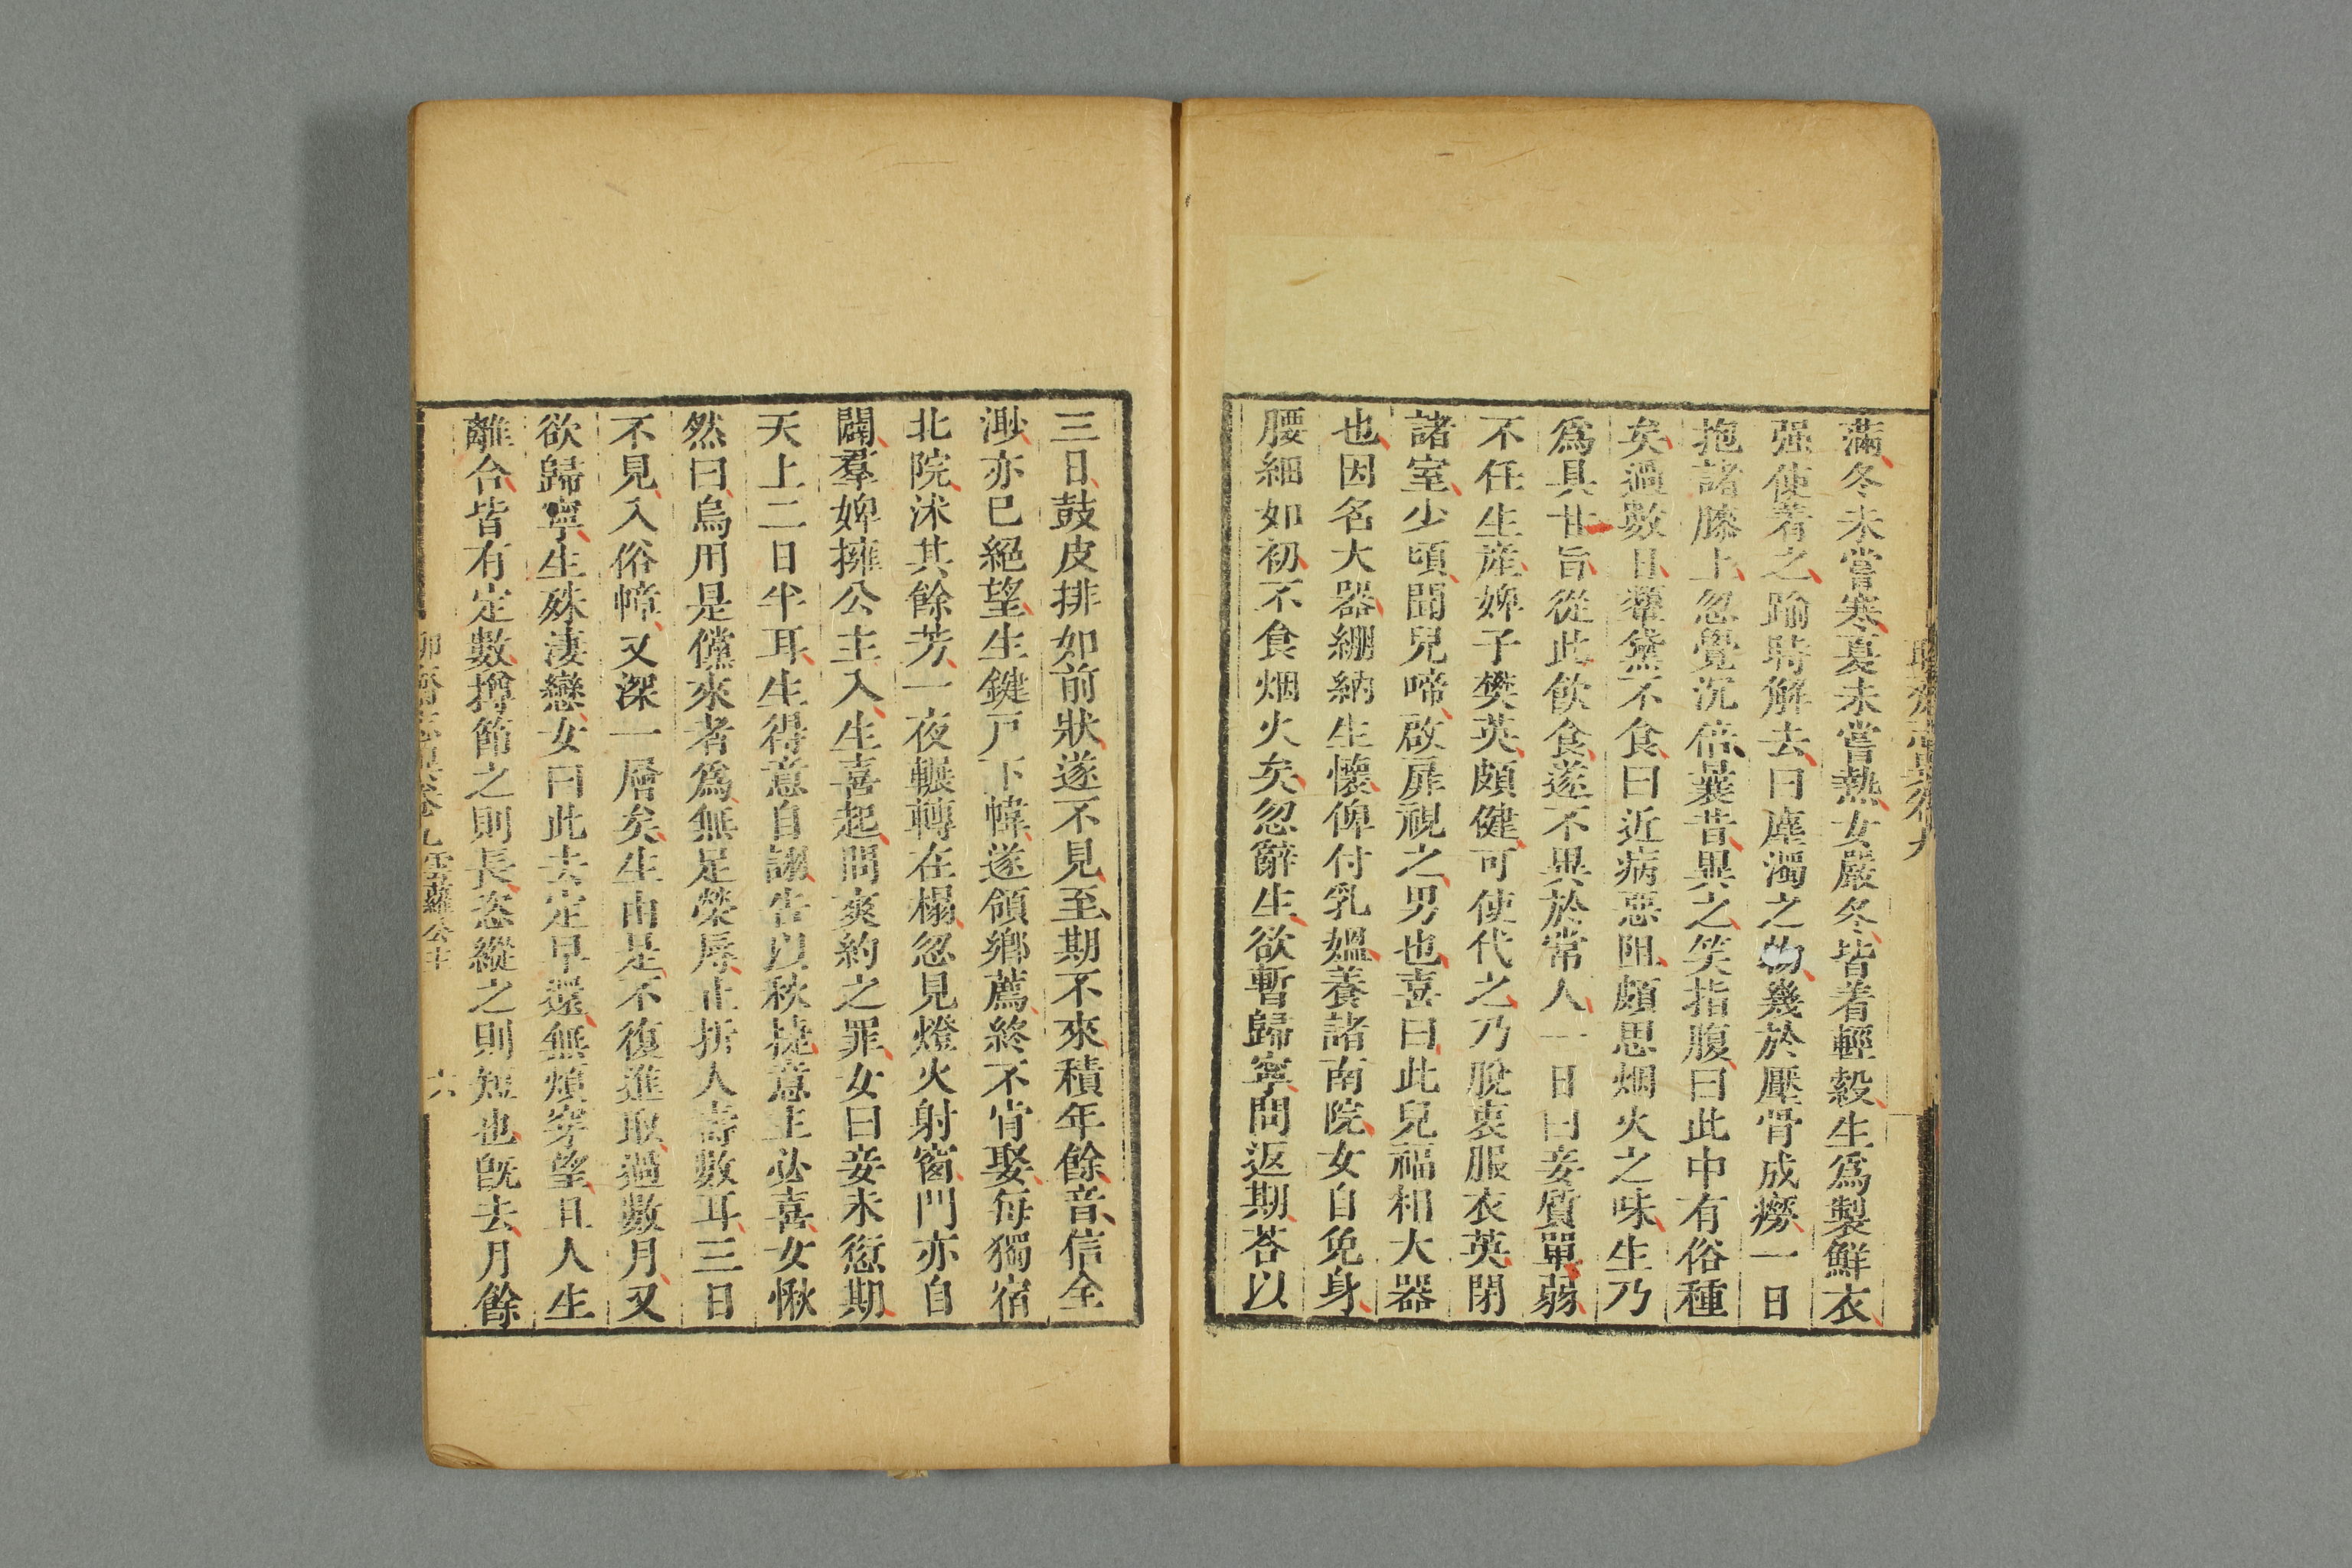 滿冬未嘗寒夏未嘗熱女嚴冬皆着輕縠生爲製鮮衣
强使着之踰時解去曰塵濁之物幾於壓骨成癆一日
抱諸膝上忽覺沉倍曩昔異之笑指腹曰此中有俗種
矣過數日顰黛不食曰近病惡阻頗思烟火之味生乃
爲具甘旨從此飲食遂不異於常人一日曰妾質單弱
不任生産婢子樊英頗健可使代之乃脫衷服衣英閉
諸室少頃聞兒啼啟扉視之男也喜曰此兒福相大器
也因名大器繃納生懷俾付乳媼養諸南院女自免身
腰細如初不食烟火矣忽辭生欲暫歸寧問返期荅以
三日鼓皮排如前狀遂不見至期不來積年餘音信全
渺亦巳絕望生鍵戸下幃遂領鄉薦終不肯娶每獨宿
北院沐其餘芳一夜輾轉在榻忽見燈火射窗門亦自
闢羣婢擁公主入生喜起問爽約之罪女曰妾未愆期
天上二日半耳生得意自詡告以秋捷意主必喜女愀
然曰烏用是儻來者爲無足榮辱止折人壽數耳三日
不見入俗幛又深一層矣生由是不復進取過數月又
欲歸寧生殊淒戀女曰此去定早還無煩穿望且人生
離合皆有定數撙節之則長恣縱之則短也旣去月餘
卷九 雲蘿公主 六